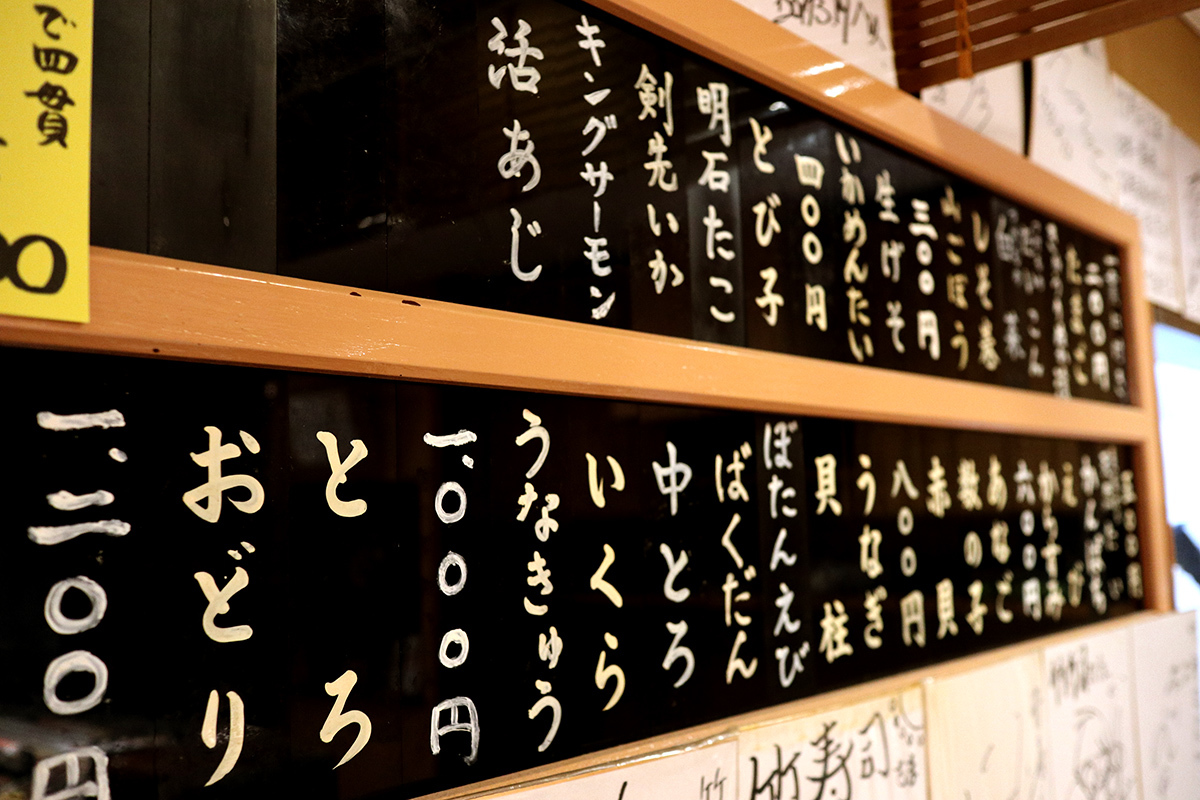 二〇〇円
たまご
しそ巻
山ごぼう
三〇〇円
生げそ
いかめんたい
四〇〇円
とび子
明石たこ
剣先いか
キングサーモン
活あじ
五〇〇円
かんぱち
えび
からすみ
六〇〇円
あなご
数の子
赤貝
八〇〇円
うなぎ
貝柱
ぼたんえび
ばくだん
中とろ
いくら
うなきゅう
一、〇〇〇円
とろ
おどり
一、二〇〇円
で四貫
竹寿司